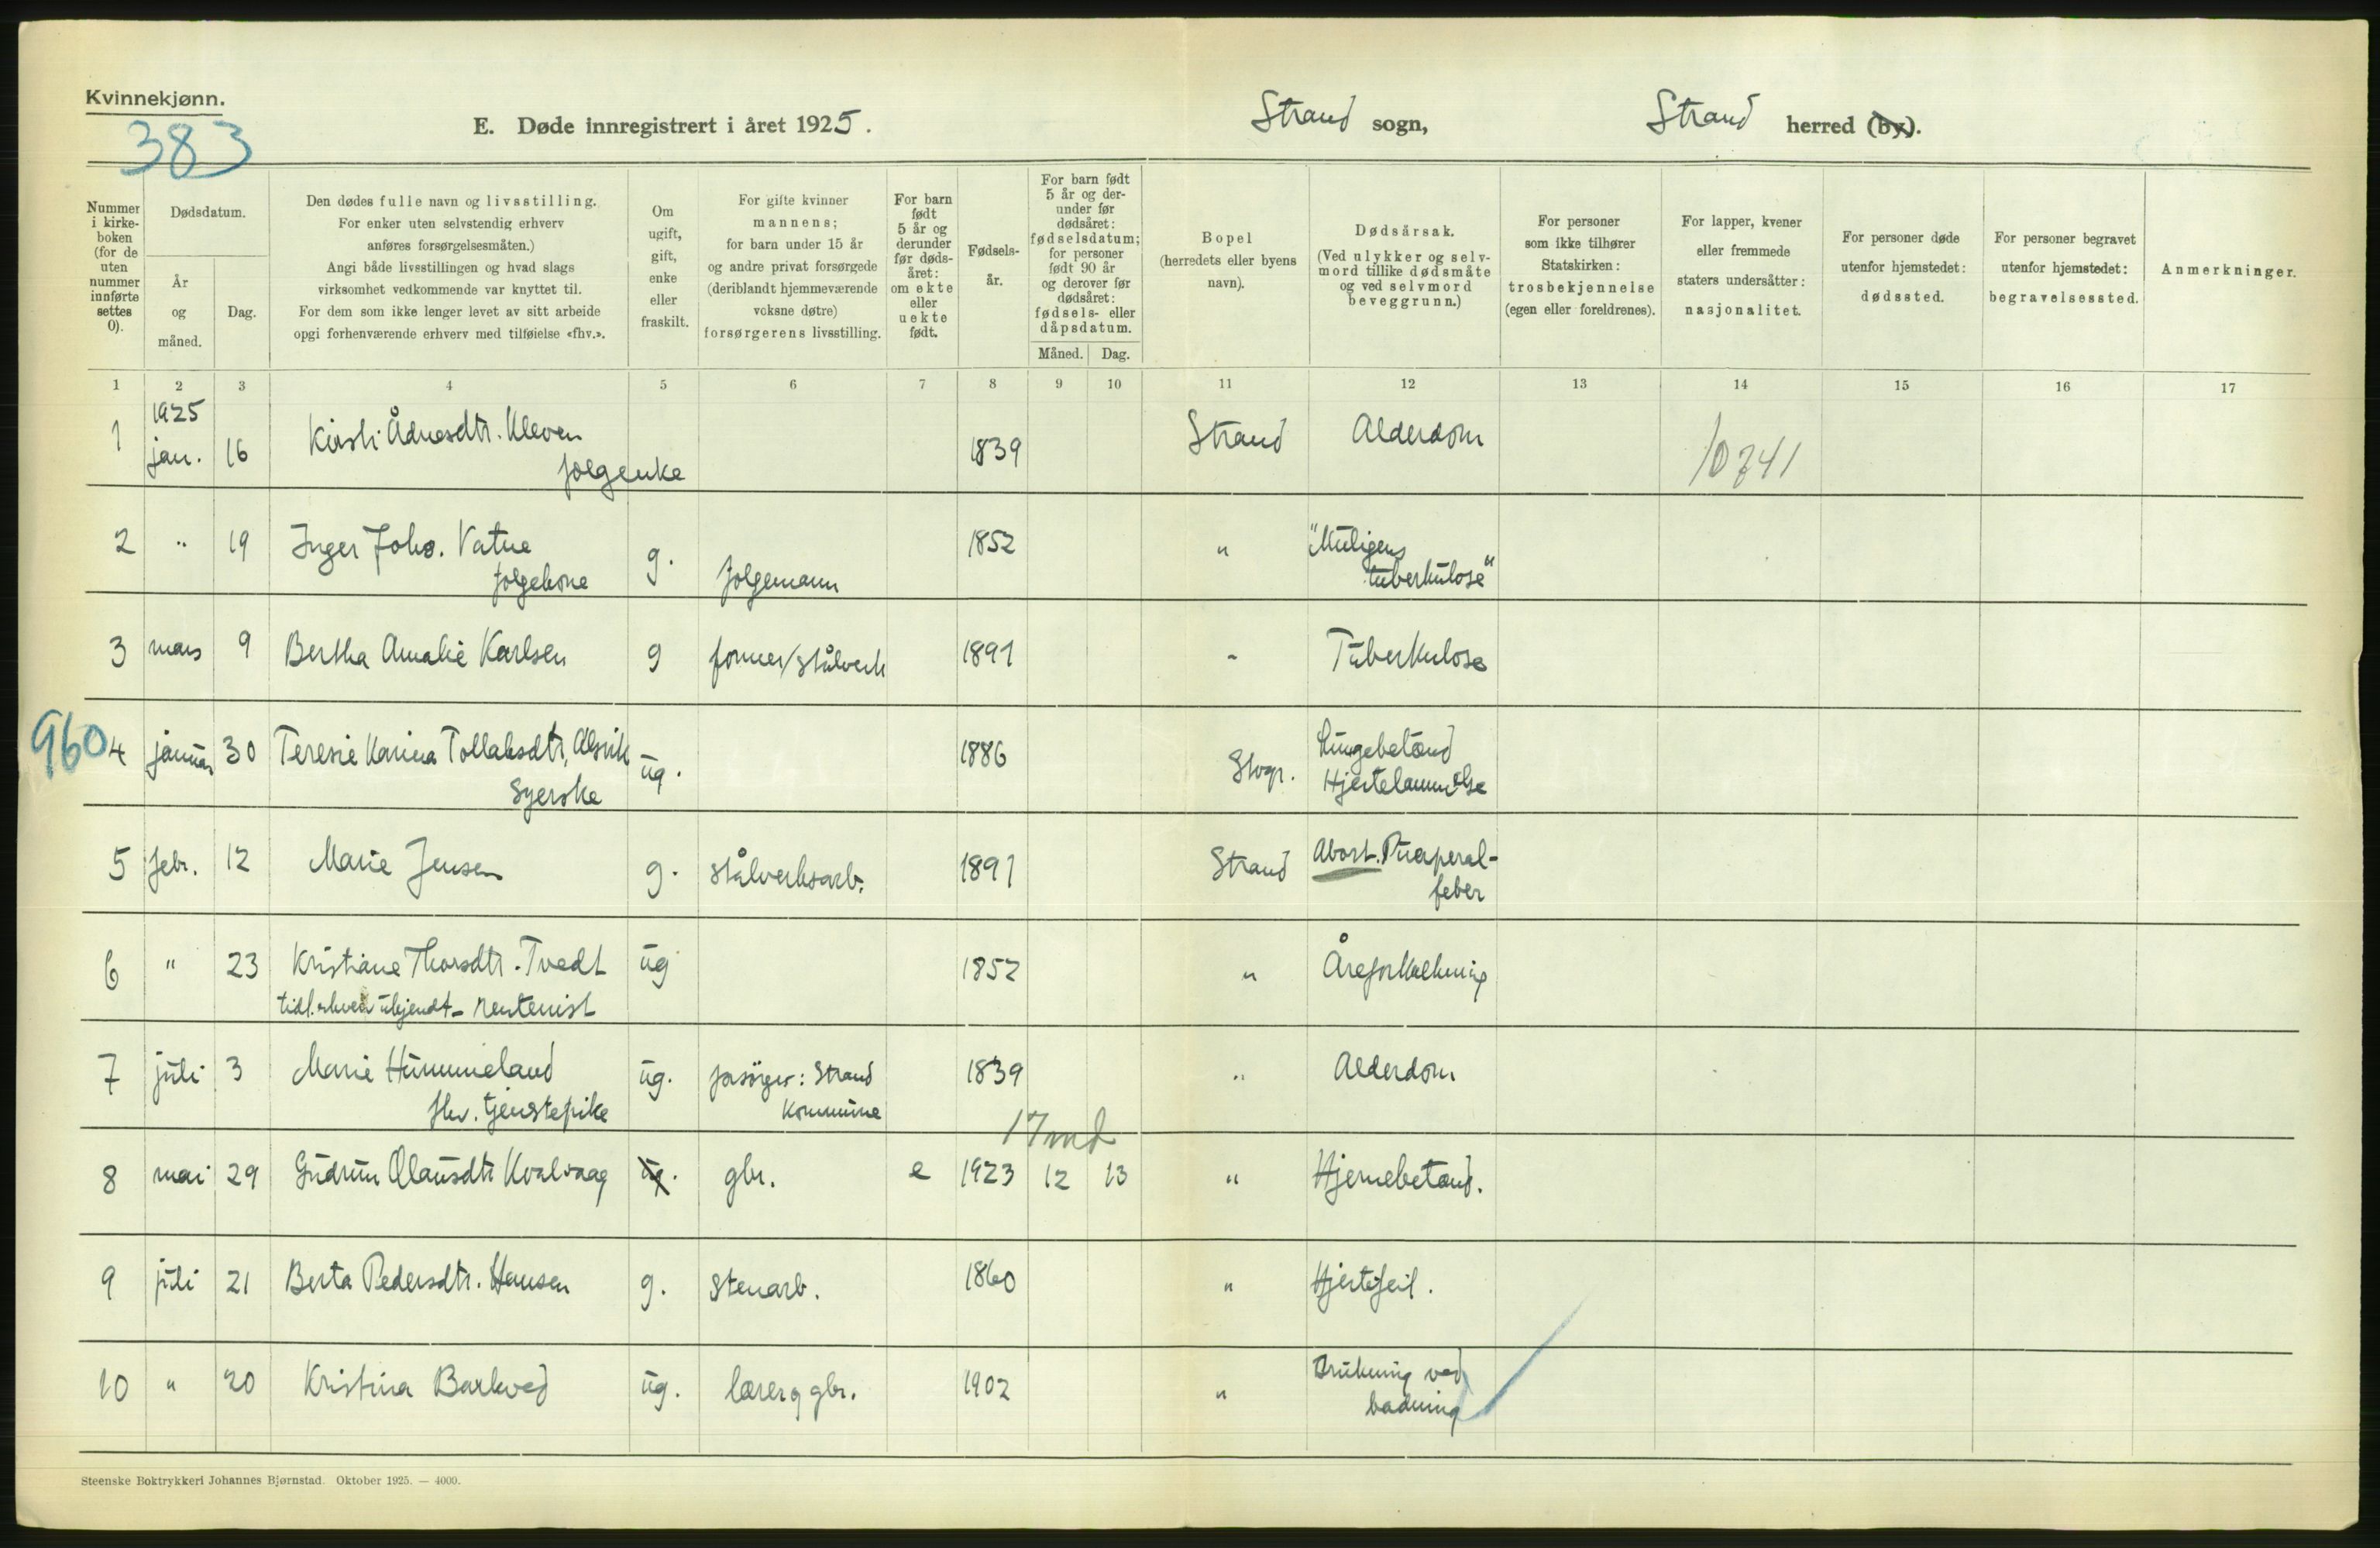 Kvinnekjønn.
383
E. Døde innregistrert i året 1925.
Strand sogn,
Strand herred (by).
Nummer i kirke- boken (for de uten nummer innførte settes 0).
Dødsdatum.
År og måned.
Dag.
Den dødes fulle navn og livsstilling.
For enker uten selvstendig erhverv
anføres forsørgelsesmåten.)
Angi både livsstillingen og hvad slags
virksomhet vedkommende var knyttet til.
For dem som ikke lenger levet av sitt arbeide
opgi forhenværende erhverv med tilføielse «fhv.».
Om ugift, gift, enke eller fraskilt.
For gifte kvinner
mannens;
for barn under 15 år
og andre privat forsørgede
(deriblandt hjemmeværende
voksne døtre)
forsørgerens livsstilling.
For barn født 5 år og derunder før døds- året: om ekte eller uekte født.
Fødsels- år.
For barn født 5 år og der- under før dødsåret: fødselsdatum; for personer født 90 år og derover før dødsåret: fødsels- eller dåpsdatum.
Måned. Dag.
Bopel
(herredets eller byens
navn).
Dødsårsak.
(Ved ulykker og selv-
mord tillike dødsmåte
og ved selvmord
beveggrunn.)
For personer
som ikke tilhører
Statskirken:
trosbekjennelse
(egen eller foreldrenes).
For lapper, kvener
eller fremmede
staters undersåtter:
nasjonalitet.
For personer døde
utenfor hjemstedet:
dødssted.
For personer begravet
utenfor hjemstedet:
begravelsessted.
Anmerkninger.
1 2 3 4 5 6 7 8 9 10 11 12 13 14 15 16 17
1925
1 jan. 16 Kirsti Ådnesdtr. Kleven 1839 Strand Alderdom
folgeenke
10741
2 " 19 Inger Johs. Vatne g. folgemann 1852 " "Muligens
folgekone tuberkulose"
3 mars 9 Bertha Amalie Karlsen g former/stålverk 1891 " Tuberkulose
960
4 januar 30 Teresie Karina Tollaksdtr. Alsvik ug. 1886 Stvgr. Lungebetænd
Syerske Hjertelammelse
5 febr. 12 Marie Jensen g. stålverksarb. 1891 Strand Abort. Puerperal-
feber
6 " 23 Kristiane Thorsdtr. Tvedt ug 1852 " Åreforkalkning
tidl. erhverv ubejendt - rentenist
7 juli 3 Marie Hummeland ug. forsörger: Strand 1839 " Alderdom
fhv. tjenstepike kommune
17 md
8 mai 29 Gudrun Olausdtr Kvalvaag ug. gbr. e 1923 12 13 " Hjernebetænd.
9 juli 21 Berta Pedersdtr. Hansen g. Stenarb. 1860 " Hjertefeil.
10 " 20 Kristina Barkved ug. lærer og gbr. 1902 " Drukning ved
badning
Steenske Boktrykkeri Johannes Bjørnstad. Oktober 1925. — 4000.